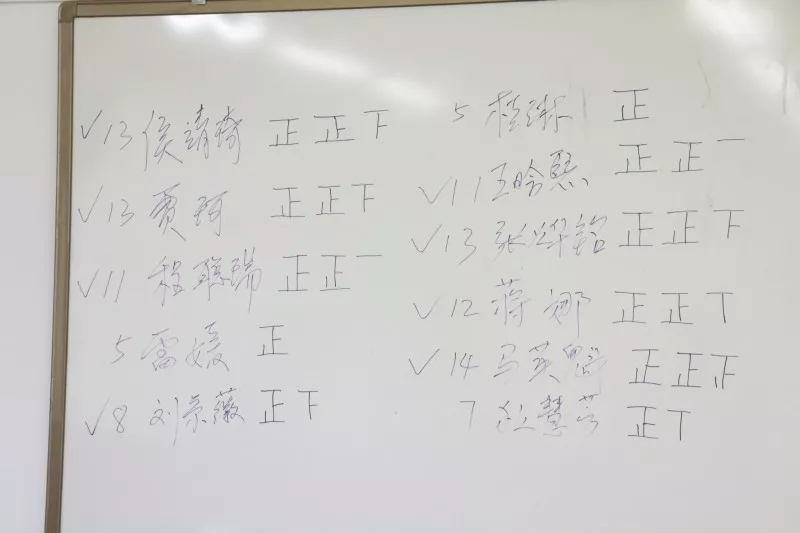 ✓13 侯靖琦 正 正 下
✓13 贾珂 正 正 下
✓11 程聪瑞 正 正 一
5 雷媛 正
✓8 刘景薇 正 下
5 桂 正
✓11 王晗熙 正 正 一
✓13 张烨铭 正 正 下
✓12 蒋娜 正 正 丅
✓14 马英 正 正 𠄟
7 慧芳 正 丅